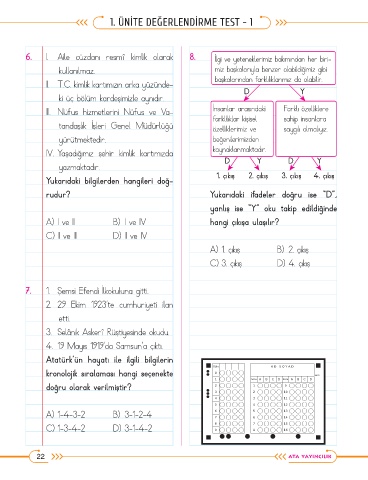 1. ÜNİTE DEĞERLENDİRME TEST - 1
6. I. Aile cüzdanı resmî kimlik olarak
kullanılmaz.
II. T.C. kimlik kartımızın arka yüzünde-
ki üç bölüm kardeşimizle aynıdır.
III. Nüfus hizmetlerini Nüfus ve Va-
tandaşlık İşleri Genel Müdürlüğü
yürütmektedir.
IV. Yaşadığımız şehir kimlik kartımızda
yazmaktadır.
Yukarıdaki bilgilerden hangileri doğ-
rudur?
A) I ve II B) I ve IV
C) II ve III D) II ve IV
7. 1. Şemsi Efendi İlkokuluna gitti.
2. 29 Ekim 1923'te cumhuriyeti ilan
etti.
3. Selânik Askerî Rüştiyesinde okudu.
4. 19 Mayıs 1919'da Samsun'a çıktı.
Atatürk'ün hayatı ile ilgili bilgilerin
kronolojik sıralaması hangi seçenekte
doğru olarak verilmiştir?
A) 1-4-3-2 B) 3-1-2-4
C) 1-3-4-2 D) 3-1-4-2
8.
İlgi ve yeteneklerimiz bakımından her biri-
miz başkalarıyla benzer olabildiğimiz gibi
başkalarından farklılıklarımız da olabilir.
D Y
İnsanlar arasındaki
farklılıklar kişisel
özelliklerimiz ve
beğenilerimizden
kaynaklanmaktadır.
Farklı özelliklere
sahip insanlara
saygılı olmalıyız.
D Y D Y
1. çıkış 2. çıkış 3. çıkış 4. çıkış
Yukarıdaki ifadeler doğru ise "D",
yanlış ise "Y" oku takip edildiğinde
hangi çıkışa ulaşılır?
A) 1. çıkış B) 2. çıkış
C) 3. çıkış D) 4. çıkış
AD SOYAD
22
ATA YAYINCILIK